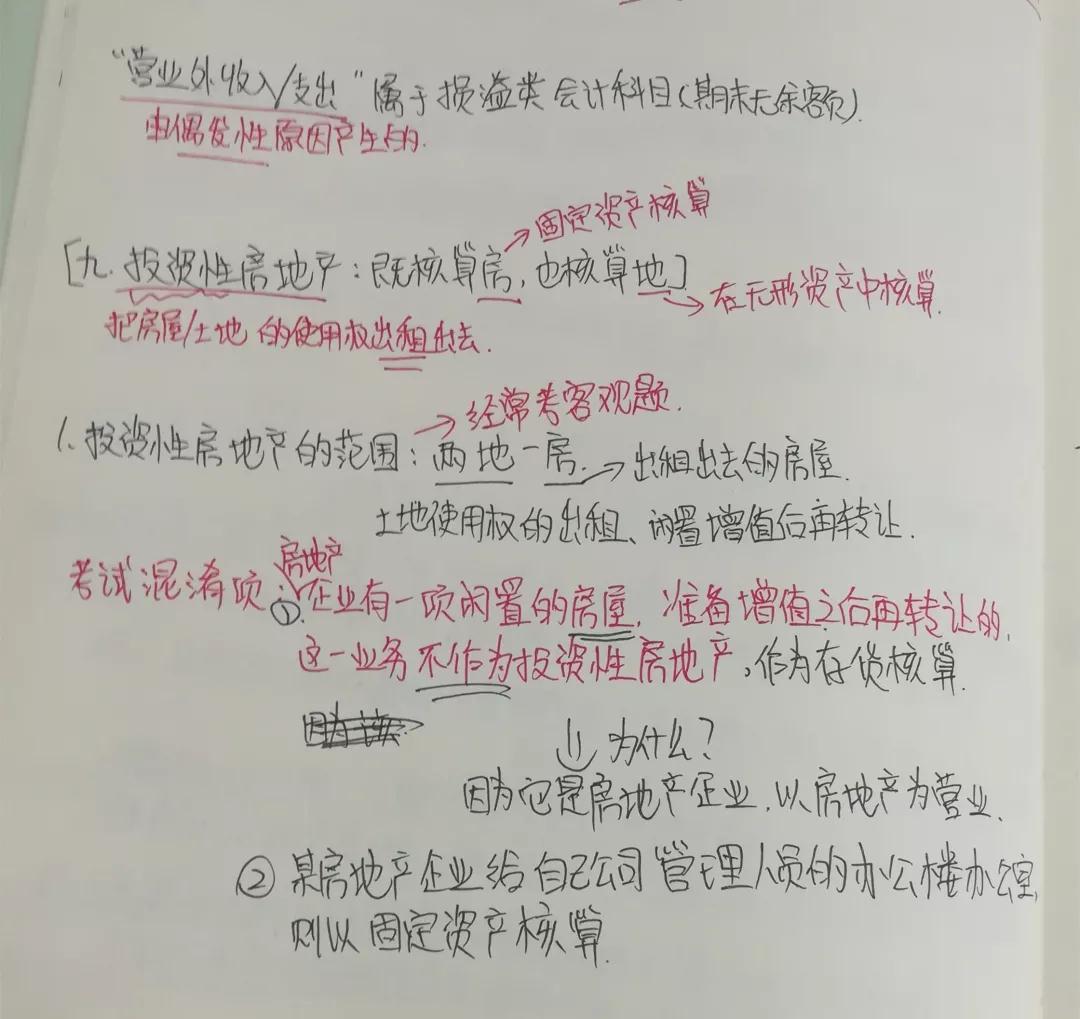 “营业外收入/支出”属于损溢类会计科目(期末无余额).
由偶发性原因产生的.
→固定资产核算
[九.投资性房地产:既核算房,也核算地]
→在无形资产中核算.
把房屋/土地的使用权出租出去.
→经常考客观题.
1.投资性房地产的范围:两地一房.→出租出去的房屋.
土地使用权的出租、闲置增值后再转让.
房地产
考试混淆项:①.企业有一项闲置的房屋,准备增值之后再转让的,
这一业务不作为投资性房地产,作为存货核算.
因为该
⇓为什么?
因为它是房地产企业,以房地产为营业.
②某房地产企业给自己公司管理人员的办公楼办公室,
则以固定资产核算.